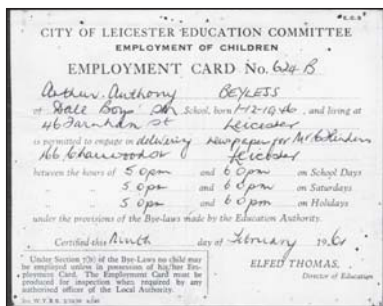 E.C.8
CITY OF LEICESTER EDUCATION COMMITTEE
EMPLOYMENT OF CHILDREN
EMPLOYMENT CARD No. 624 B
Arthur. Anthony BEYLESS
of Dale Boys' School, born 1-12-1946, and living at
46 Farnham St Leicester
is permitted to engage in delivering newspapers for Mr
166 Charnwood St Leicester
between the hours of 5 0pm and 6 0pm on School Days
" 5 0pm and 6 0pm on Saturdays
" 5 0pm and 6 0pm on Holidays
under the provisions of the Bye-laws made by the Education Authority.
Certified this Ninth day of February 1961
Under Section 7(b) of the Bye-Laws no child may
be employed unless in possession of his/her Em-
ployment Card. The Employment Card must be
produced for inspection when required by any
authorised officer of the Local Authority.
ELFED THOMAS,
Director of Education